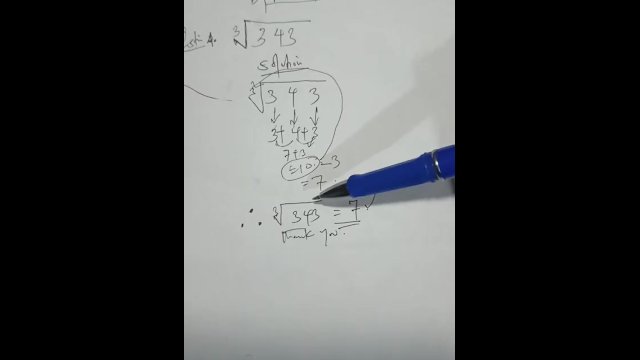 ∛343
Solution
∛3 4 3
3+ 4+3
7+3
=10 - 3
= 7
∴ ∛343 = 7
Thank you.